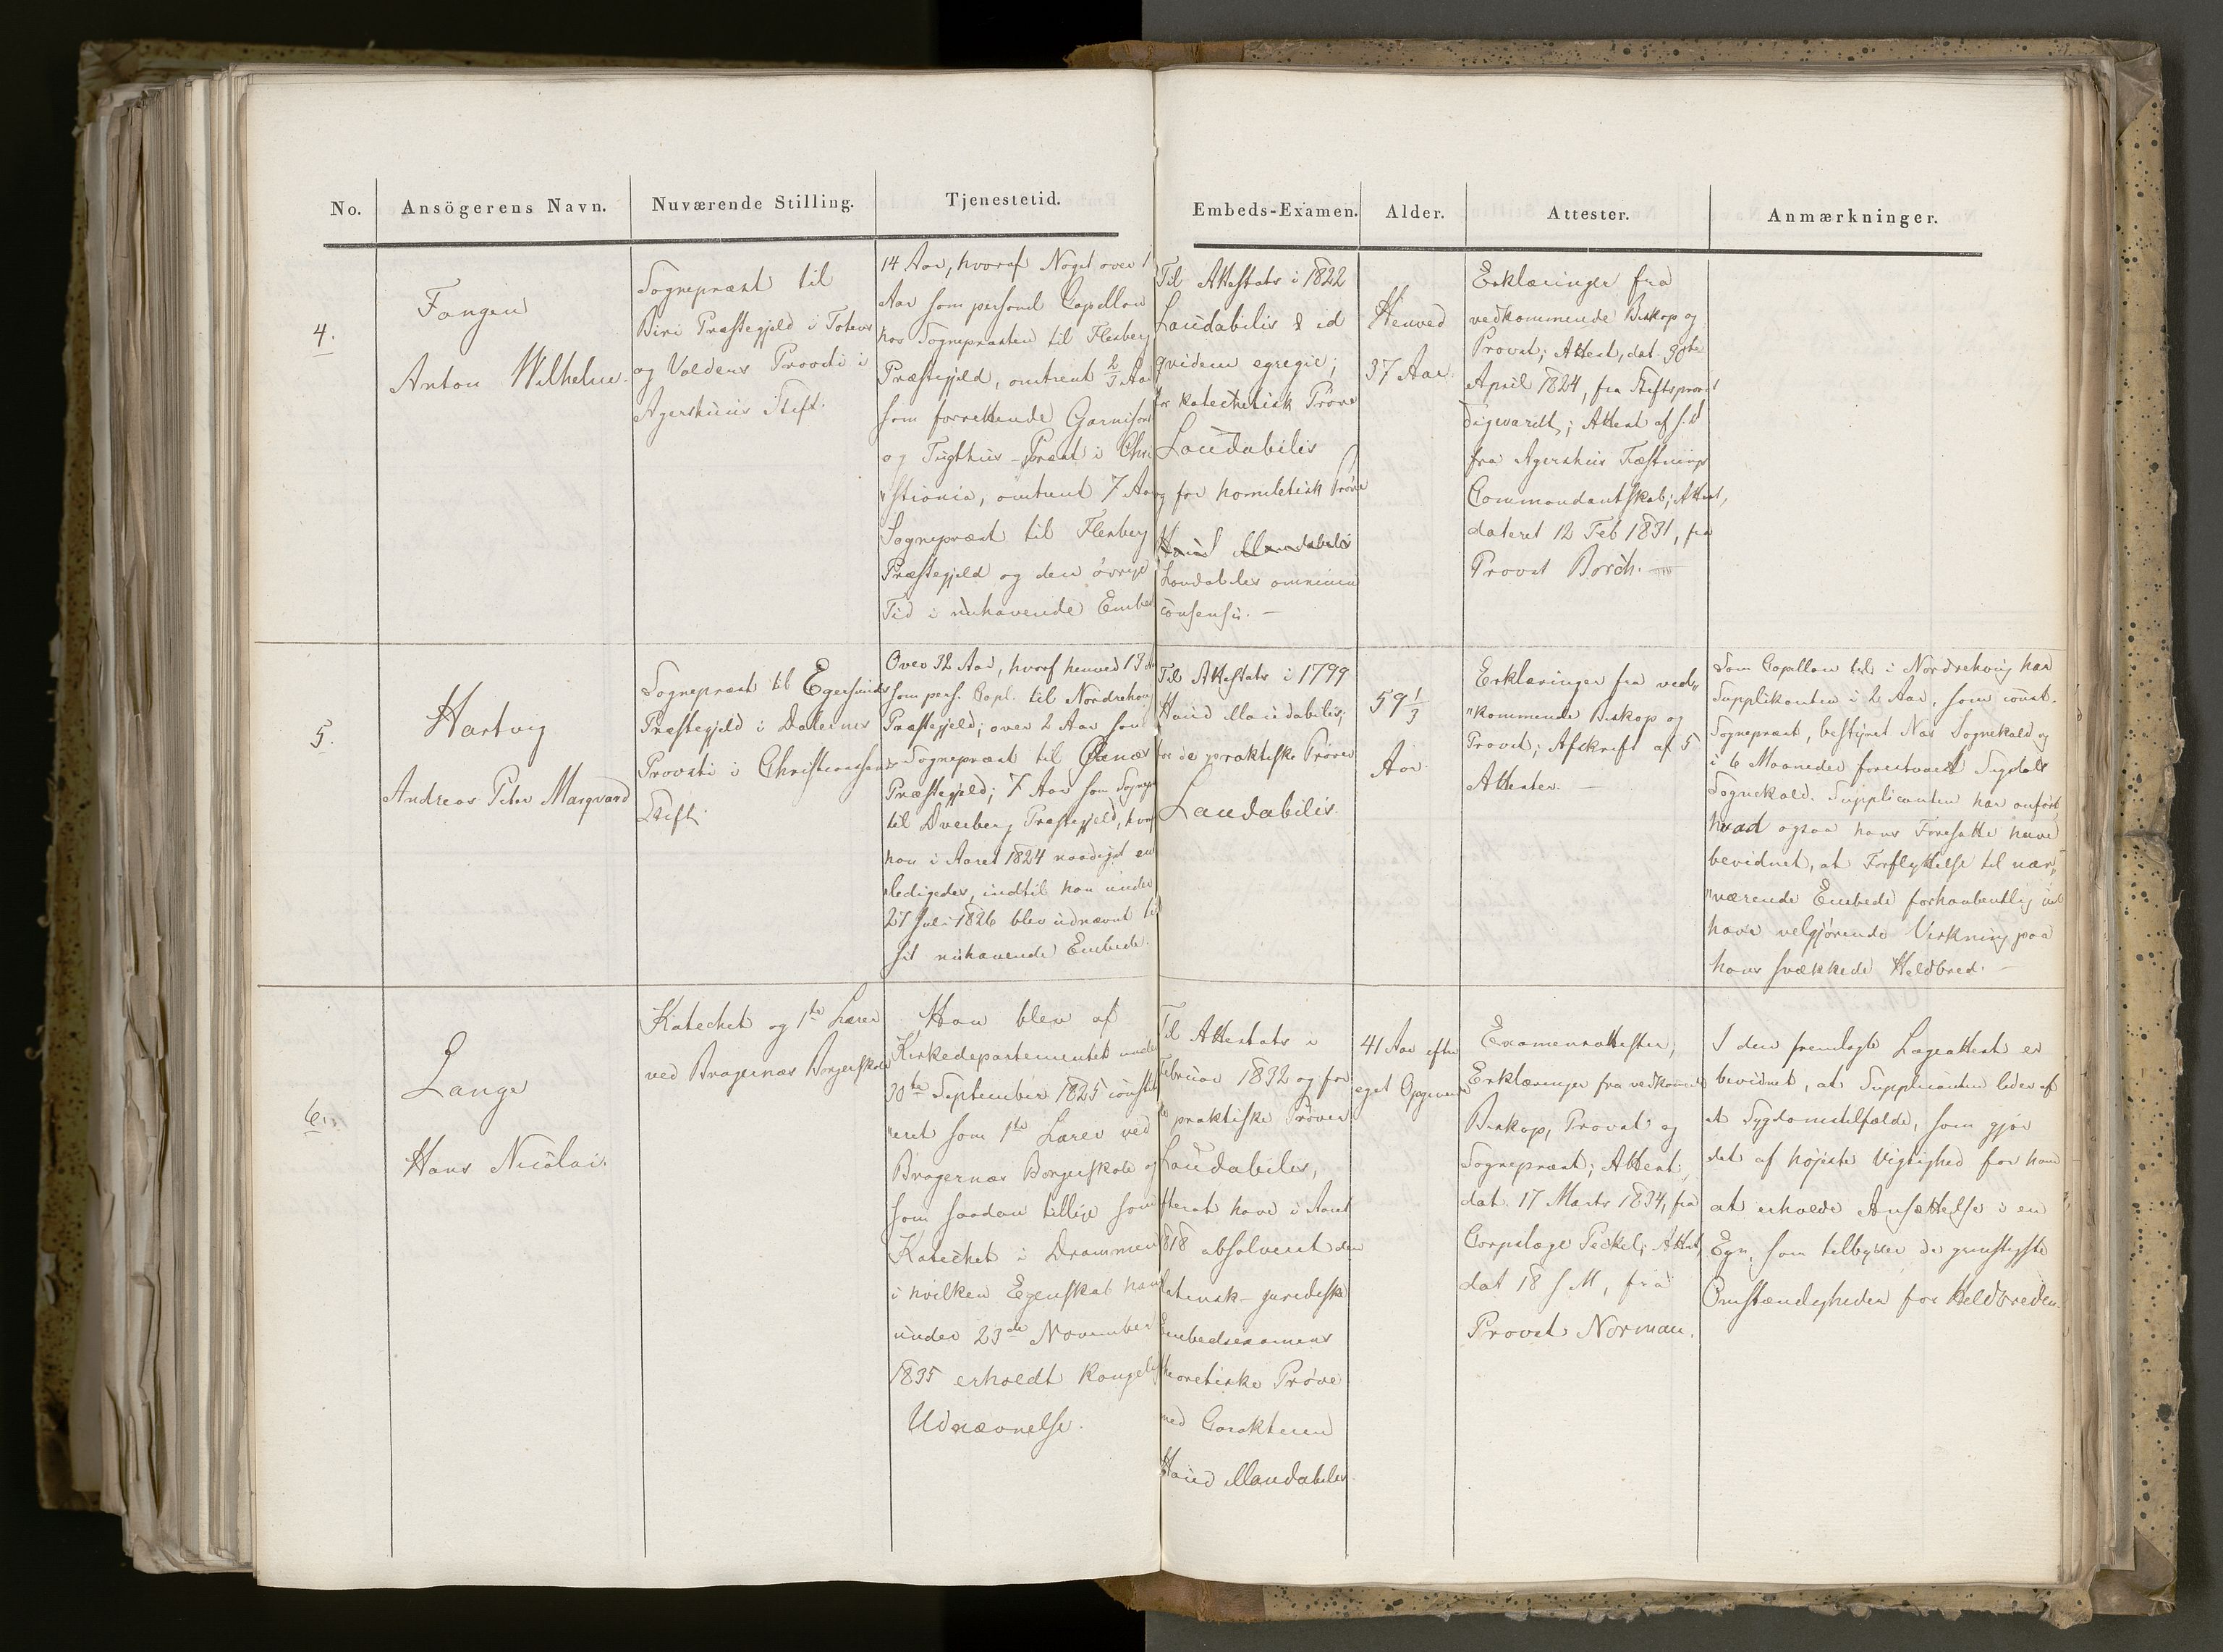 No.
Ansögerens Navn.
Nuværende Stilling.
Tjenestetid.
Embeds-Examen.
Alder.
Attester.
Anmærkninger.
4.
Fangen
Anton Wilhelm.
Sognepræst til
Biri Præstegjeld i Totens
og Valders Provsti i
Agershuus Stift.
14 Aar, hvoraf Noget over 1
Aar som personel Capellan
hos Sognepræsten til Flesberg
Præstegjeld, omtrent 2/3 Aar
som forrettende Garnisons
og Tugthuus-Præst i Chri
"stiania, omtrent 7 Aar
Sognepræst til Flesberg
Præstegjeld og den øvrige
Tid i nuhavende Embed
Til Attestats i 1822
Laudabilis & id
qvidem egregie;
for katechetisk Prøve
Laudabilis
og for homiletisk Prøve
Haud illaudabilis
Laudabilis omnium
consensu. —
Henved
37 Aar.
Erklæringer fra
vedkommende Biskop og
Provst; Attest, dat. 30te
April 1824, fra Stiftsprovst
Sigwardt; Attest af s. D
fra Agershuus Fæstnings
Commandantskab; Attest,
dateret 12 Feb 1831, fra
Provst Borch. —
5.
Hartvig
Andreas Peter Marqvard
Sognepræst til Egersunds
Præstegjeld i Dalernes
Provsti i Christianssands
Stift.
Over 32 Aar, hvoraf henved 13 Aar
som pers. Capl. til Nordrehoug
Præstegjeld; over 2 Aar som
Sognepræst til Præstegjeld; 7 Aar som Sognepr
til Dverberg Præstegjeld, hvorfra
han i Aaret 1824 naadigst ent
"ledigedes, indtil han under
27 Juli 1826 blev udnævnt til
sit nuhavende Embede.
Til Attestats i 1799
Haud illaudabilis;
for de praktiske Prøver
Laudabilis.
59 1/3
Aar
Erklæringer fra ved=
"kommende Biskop og
Provst; Afskrift af 5
Attester. —
Som Capellan til i Nordrehoug har
Supplikanten i 2 Aar, som const.
Sognepræst, bestyret Næs Sognekald og
i 6 Maaneder forestaaet Sigdals
Sognekald. Supplicanten har anført,
hvad ogsaa hans Foresatte have
bevidnet, at Forflyttelse til nær=
"værende Embede forhaabentlig vil
have velgjørende Virkning paa
hans svækkede Helbred. —
6.
Lange
Hans Nicolai.
Katechet og 1ste Lærer
ved Bragernæs Borgerskole
Han blev af
Kirkedepartementet under
30te September 1825 constitu
"eret som 1ste Lærer ved
Bragernæs Borgerskole og
som saadan tillige som
Katechet i Drammen
i hvilken Egenskab han
under 23de November
1835 erholdt kongelig
Udnævnelse.
Til Attestats i
Februar 1832 og for
de praktiske Prøver
Laudabilis,
efterat have i Aaret
1818 absolveret den
latinsk-juridiske
Embedsexamens
theoretiske Prøve
med Carakteren
Haud illaudabilis
41 Aar efter
eget Opgivende
Examensattester,
Erklæringer fra vedkommende
Biskop, Provst og
Sognepræst; Attest,
dat. 17 Marts 1834, fra
Corpslæge Peckel; Attest,
dat 18 s. M., fra
Provst Norman.
I den fremlagte Lægeattest er
bevidnet, at Supplicanten lider af
et Sygdomstilfælde, som gjør
det af højeste Vigtighed for ham
at erholde Ansættelse i en
Egn, som tilbyder de gunstigste
Omstændigheder for Helbreden.